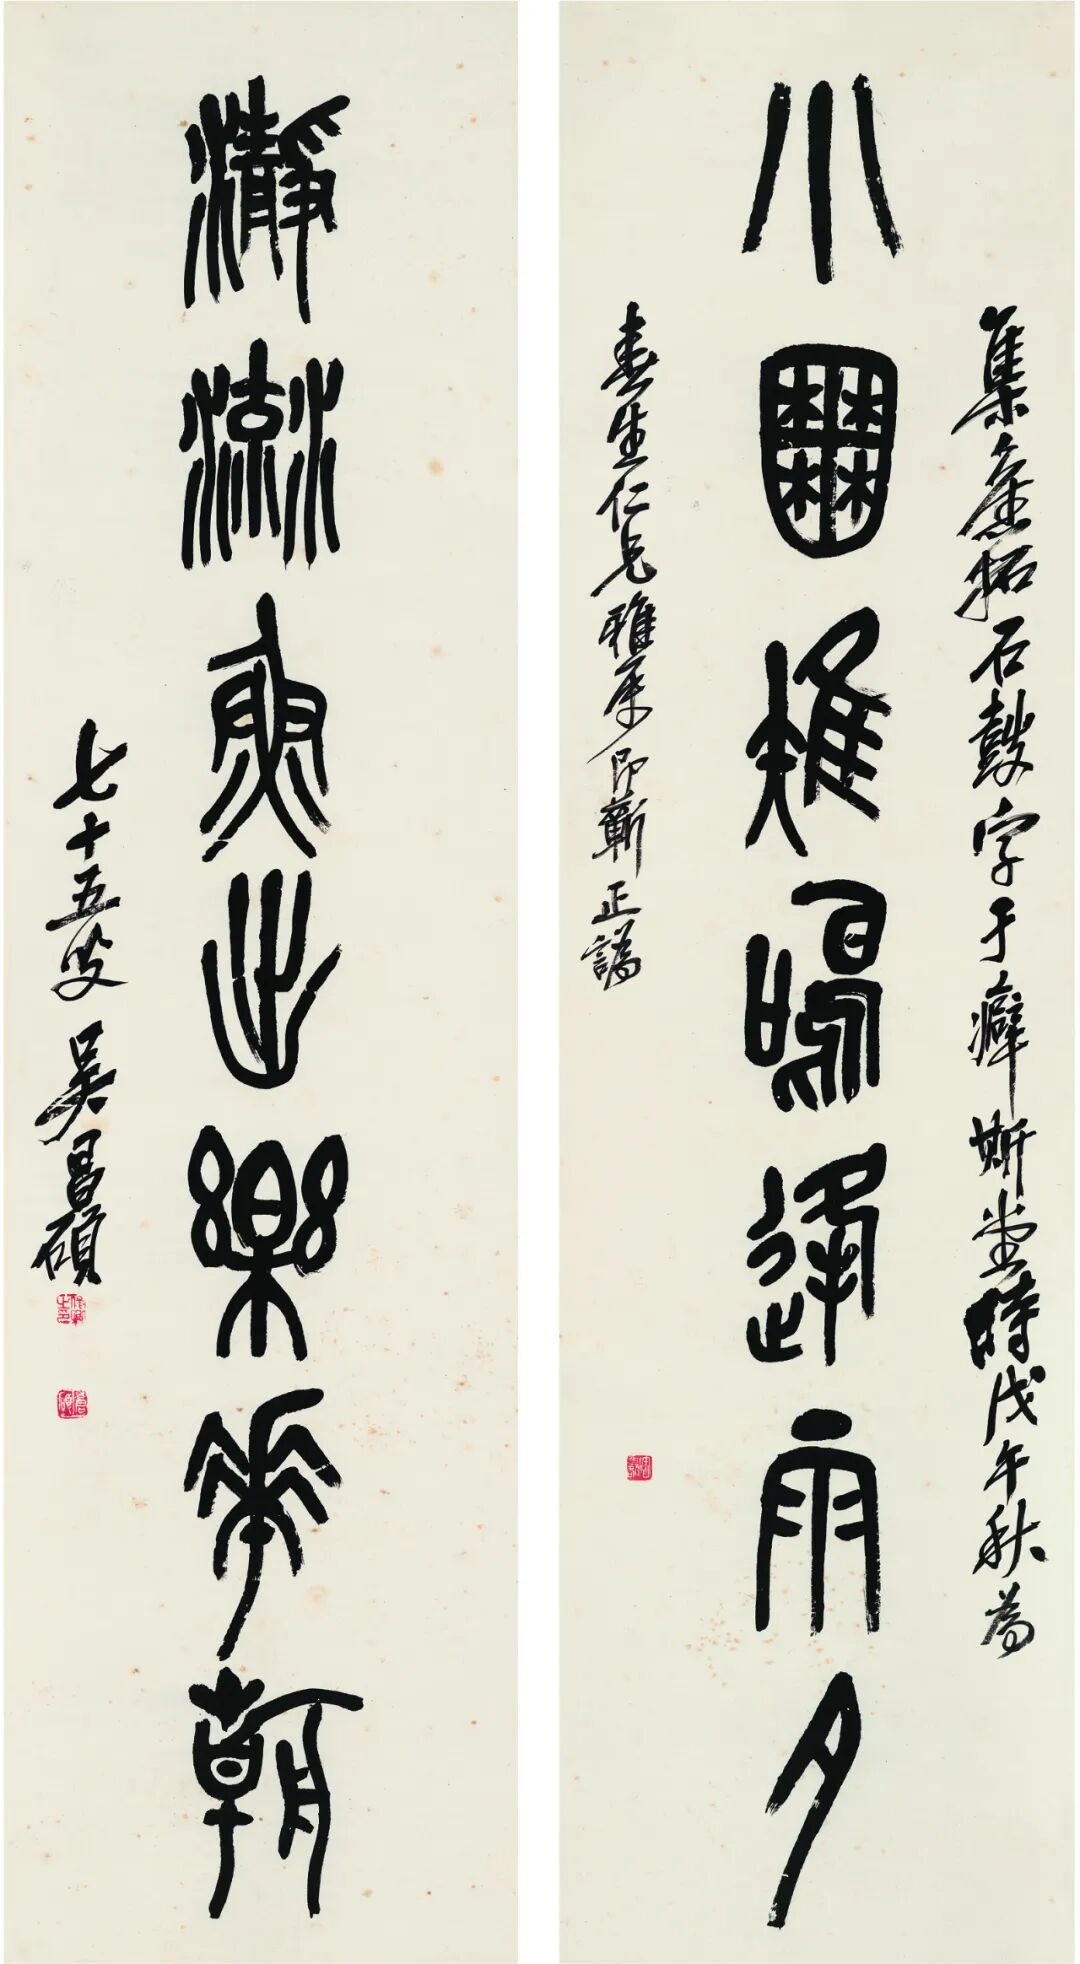 集舊拓石鼓字于癖斯堂時戊午秋為
小囿雉鳴逢雨夕
春生仁兄雅屬即蘄正譌
瀞流魚出樂華朝
七十五叟吳昌碩